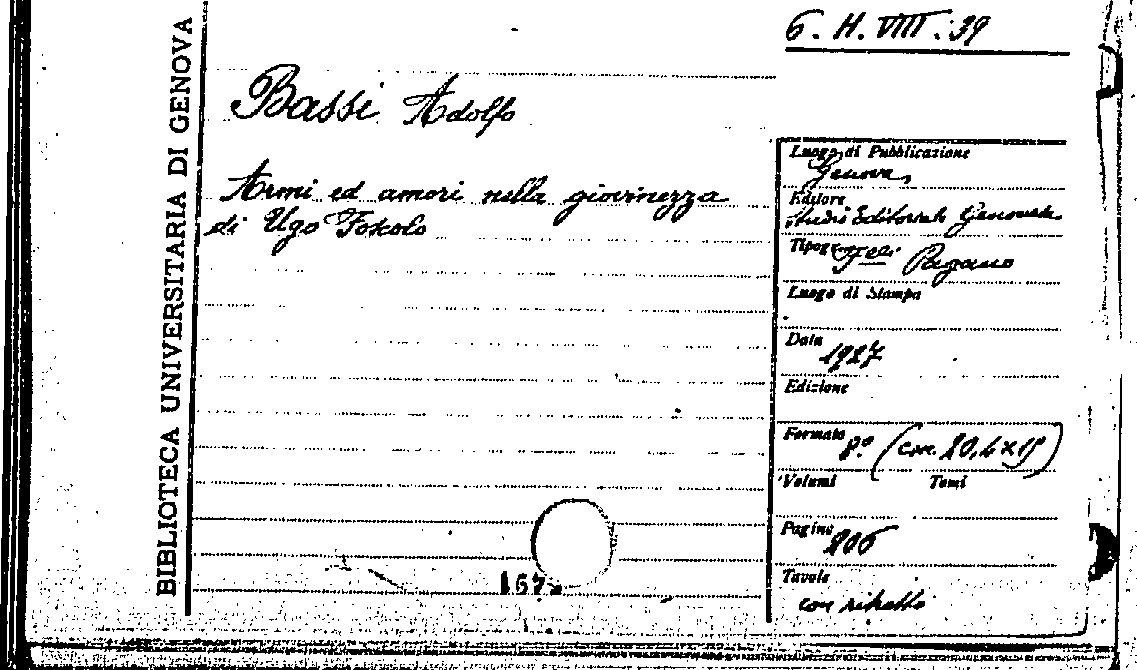 6. H. VIII. 39
BIBLIOTECA UNIVERSITARIA DI GENOVA
Bassi Adolfo
Armi ed amori nella giovinezza
di Ugo Foscolo
Luogo di Pubblicazione
Genova,
Editore
Studio Editoriale Genovese
Tipog
F.lli Pagano
Luogo di Stampa
Data
1927
Edizione
Formato 8º (cm. 20,4 x 15)
Volumi Tomi
Pagine
206
Tavole
con ritratto
167